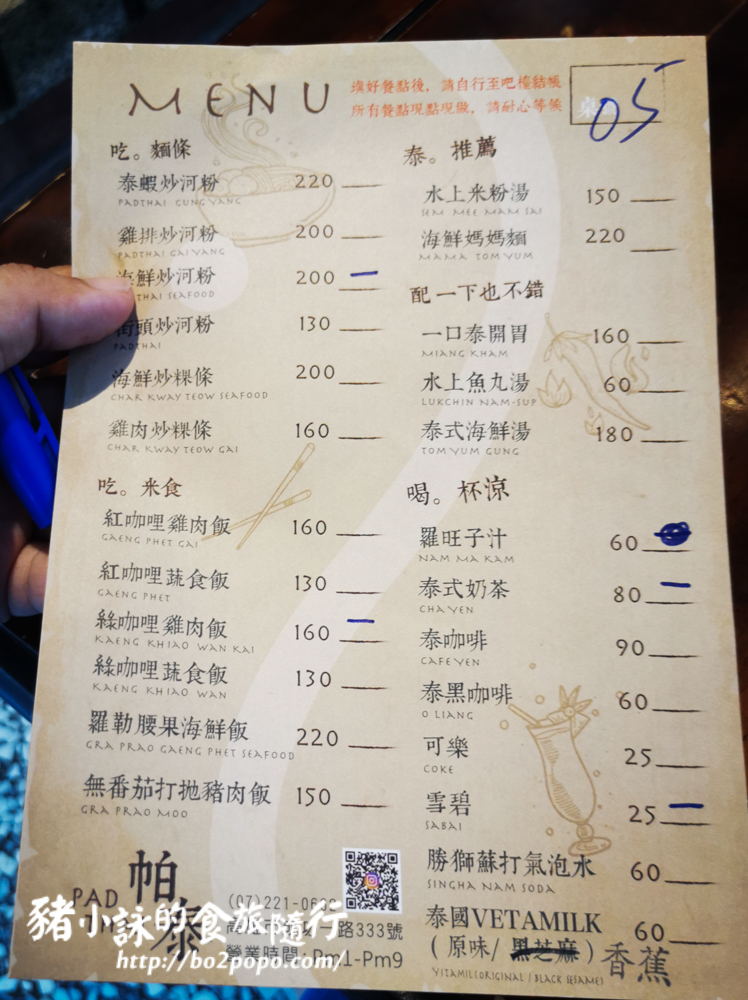 MENU
填好餐點後，請自行至吧檯結帳
所有餐點現點現做，請耐心等候
05
吃。麵條
泰蝦炒河粉 220
PADTHAI GUNG YANG
雞排炒河粉 200
PADTHAI GAI YANG
海鮮炒河粉 200
THAI SEAFOOD
街頭炒河粉 130
PADTHAI
海鮮炒粿條 200
CHAR KWAY TEOW SEAFOOD
雞肉炒粿條 160
CHAR KWAY TEOW GAI
吃。米食
紅咖哩雞肉飯 160
GAENG PHET GAI
紅咖哩蔬食飯 130
GAENG PHET
綠咖哩雞肉飯 160
KAENG KHIAO WAN KAI
綠咖哩蔬食飯 130
KAENG KHIAO WAN
羅勒腰果海鮮飯 220
GRA PRAO GAENG PHET SEAFOOD
無番茄打拋豬肉飯 150
GRA PRAO MOO
泰。推薦
水上米粉湯 150
SEM MEE MAM SAI
海鮮媽媽麵 220
MAMA TOM YUM
配一下也不錯
一口泰開胃 160
MIANG KHAM
水上魚丸湯 60
LUKCHIN NAM-SUP
泰式海鮮湯 180
TOM YUM GUNG
喝。杯涼
羅旺子汁 60
NAM MA KAM
泰式奶茶 80
CHA YEN
泰咖啡 90
CAFE YEN
泰黑咖啡 60
O LIANG
可樂 25
COKE
雪碧 25
SABAI
勝獅蘇打氣泡水 60
SINGHA NAM SODA
泰國VETAMILK 60
(原味/黑芝麻) 香蕉
VITAMIL(ORIGINAL / BLACK SESAME)
PAD
帕泰
(07)221-06
路333號
營業時間:Pm1-Pm9
豬小詠的食旅隨行
http://bo2popo.com/